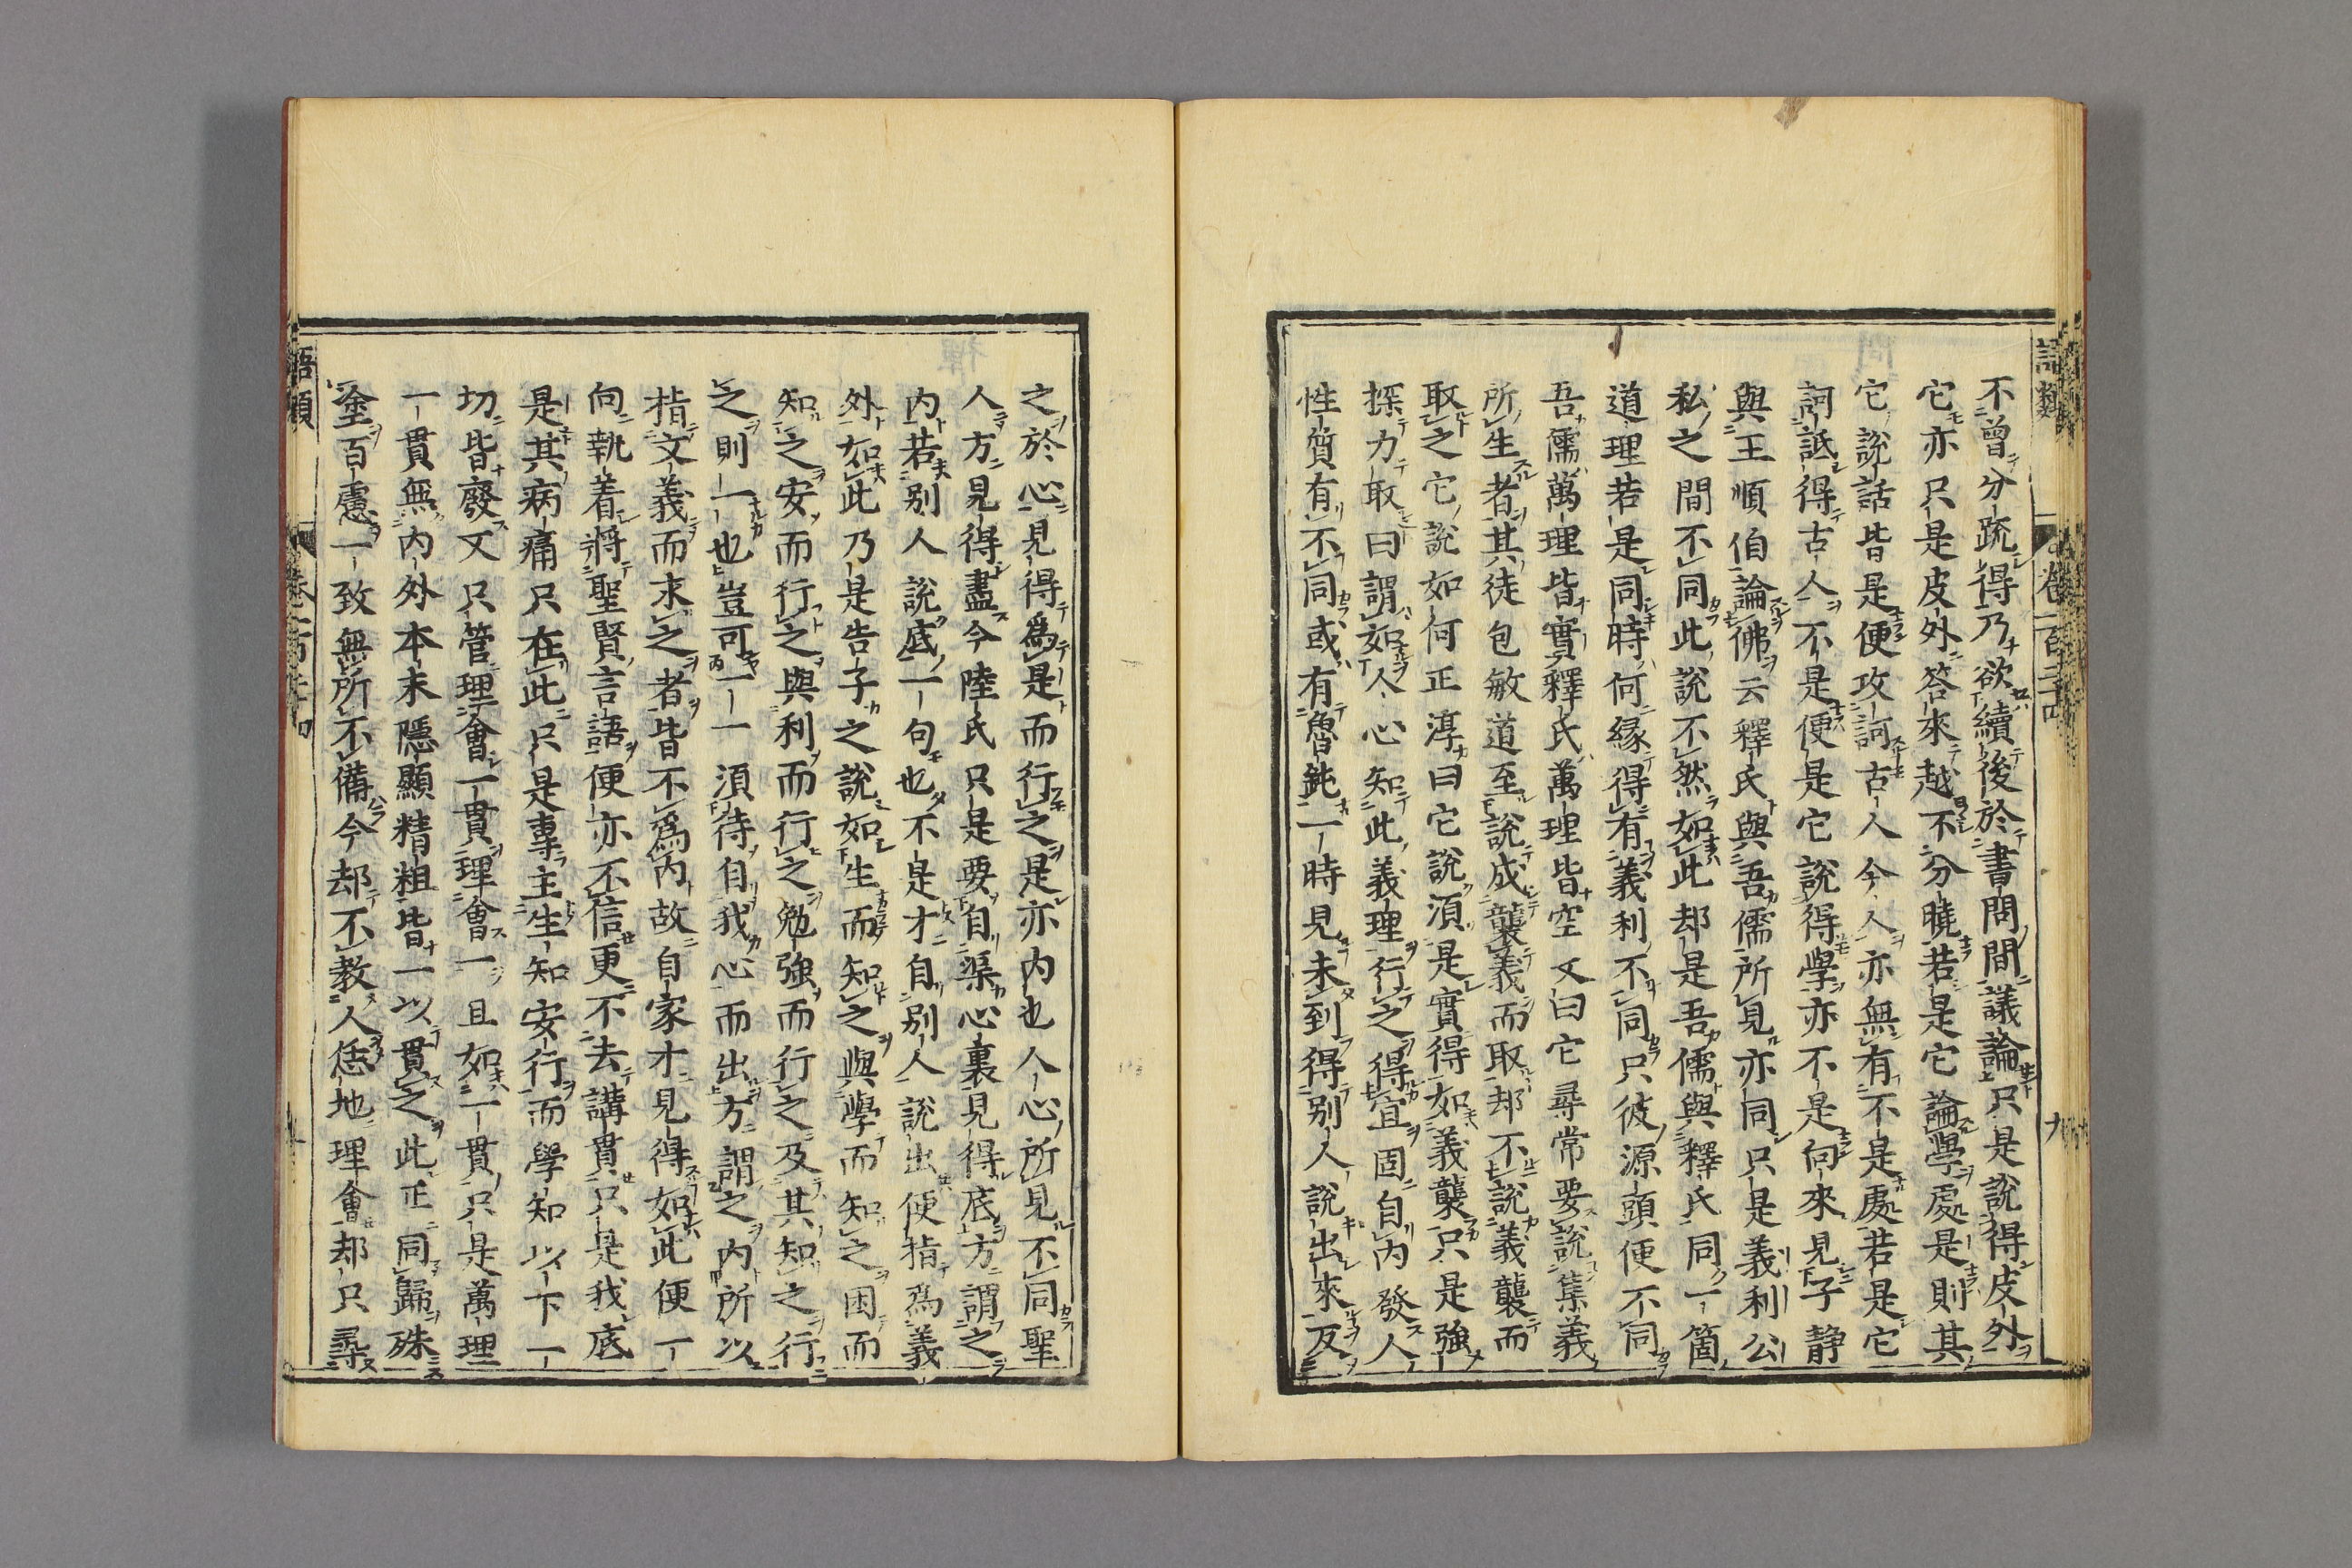 語類
卷一百二十四
九
不曾分疏得乃欲續後於書問間議論只是說得皮外
它亦只是皮外答來越不分曉若是它論學處是則其
它說話皆是便攻訶古人今人亦無有不是處若是它
訶詆得古人不是便是它說得學亦不是向來見子靜
與王順伯論佛云釋氏與吾儒所見亦同只是義利公
私之間不同此說不然如此却是吾儒與釋氏同一箇
道理若是同時何緣得有義利不同只彼源頭便不同
吾儒萬理皆實釋氏萬理皆空又曰它尋常要說集義
所生者其徒包敏道至說成襲義而取却不說義襲而
取之它說如何正淳曰它說須是實得如義襲只是強
探力取曰謂如人心知此義理行之得宜固自內發人
性質有不同或有魯鈍一時見未到得別人說出來反
之於心見得為是而行之是亦內也人心所見不同聖
人方見得盡今陸氏只是要自渠心裏見得底方謂之
內若別人說底一句也不是才自別人說出便指為義
外如此乃是告子之說如生而知之與學而知之困而
知之安而行之與利而行之勉強而行之及其知之行
之則一也豈可一一須待自我心而出方謂之內所以
指文義而求之者皆不為內故自家才見得如此便一
向執着將聖賢言語便亦不信更不去講貫只是我底
是其病痛只在此只是專主生知安行而學知以下一
切皆廢又只管理會一貫理會一且如一貫只是萬理
一貫無內外本末隱顯精粗皆一以貫之此正同歸殊
塗百慮一致無所不備今却不教人恁地理會却只尋
語類
卷一百二十四